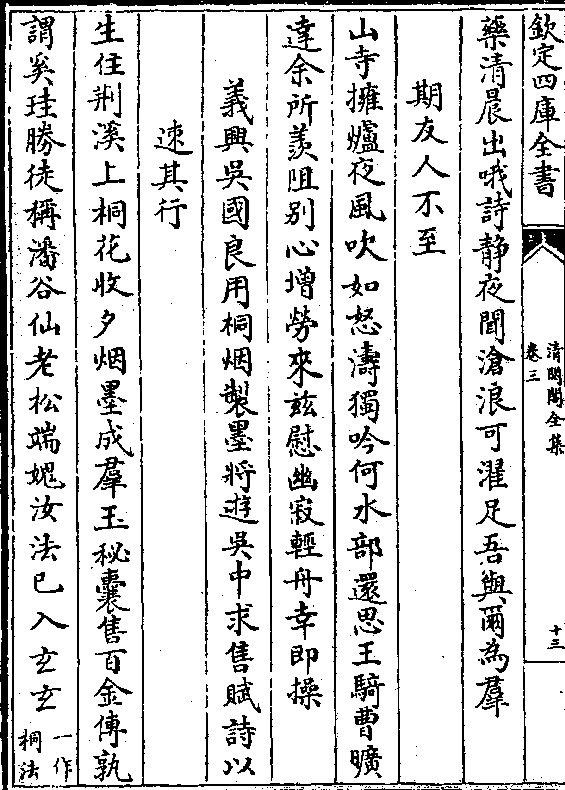 欽定四庫全書
清閟閣全集
卷三
十三
藥清晨出哦詩静夜聞滄浪可濯足吾與爾為羣
期友人不至
山寺擁爐夜風吹如怒濤獨吟何水部還思王騎曹曠
達余所羨阻别心增勞來兹慰幽寂輕舟幸即操
義興吳國良用桐烟製墨將遊吳中求售賦詩以
速其行
生住荆溪上桐花收夕烟墨成羣玉秘囊售百金傳孰
謂奚珪勝徒稱潘谷仙老松端媿汝法已入玄玄
一作
桐法